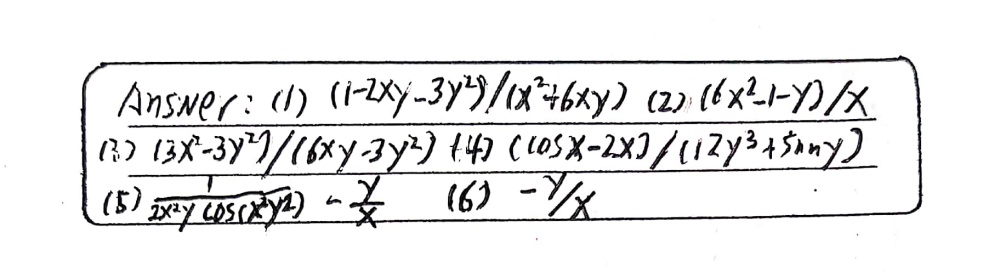 Answer: (1) (1-2xy-3y²)/(x²+6xy) (2) (6x²-1-y)/x
(3) (3x²-3y²)/(6xy-3y²) (4) (cosx-2x)/(12y³+siny)
(5) 1/(2x²y cos(x²y²)) - y/x (6) -y/x